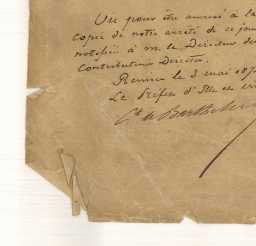 Vu pour être annexé à la
copie de notre arrêté de ce jour
notifiée à M. le Directeur des
Contributions Directes.
Rennes le 2 mai 187
Le Préfet d'Ille et
Cte de